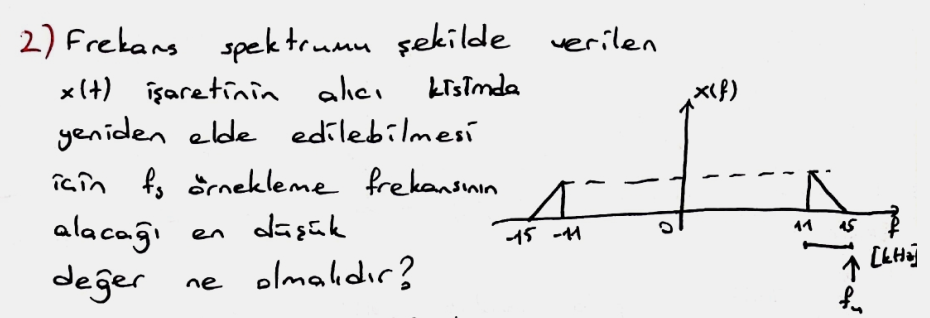 2) Frekans spektrumu şekilde verilen
x(t) işaretinin alıcı kısımda
yeniden elde edilebilmesi
için fs örnekleme frekansının
alacağı en düşük
değer ne olmalıdır?
x(f)
-15 -11 0 11 15 f
[kHz]
fu